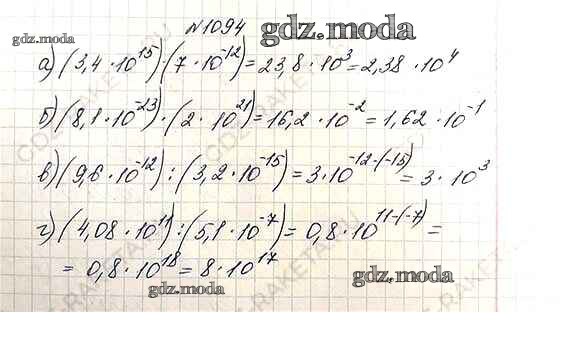 №1094
gdz.moda
gdz.moda
а) (3,4·10¹⁵)·(7·10⁻¹²)=23,8·10³=2,38·10⁴
б) (8,1·10⁻²³)·(2·10²¹)=16,2·10⁻²=1,62·10⁻¹
в) (9,6·10⁻¹²):(3,2·10⁻¹⁵)=3·10⁻¹²⁻⁽⁻¹⁵⁾=3·10³
г) (4,08·10¹¹):(5,1·10⁻⁷)=0,8·10¹¹⁻⁽⁻⁷⁾=
=0,8·10¹⁸=8·10¹⁷
gdz.moda
gdz.moda